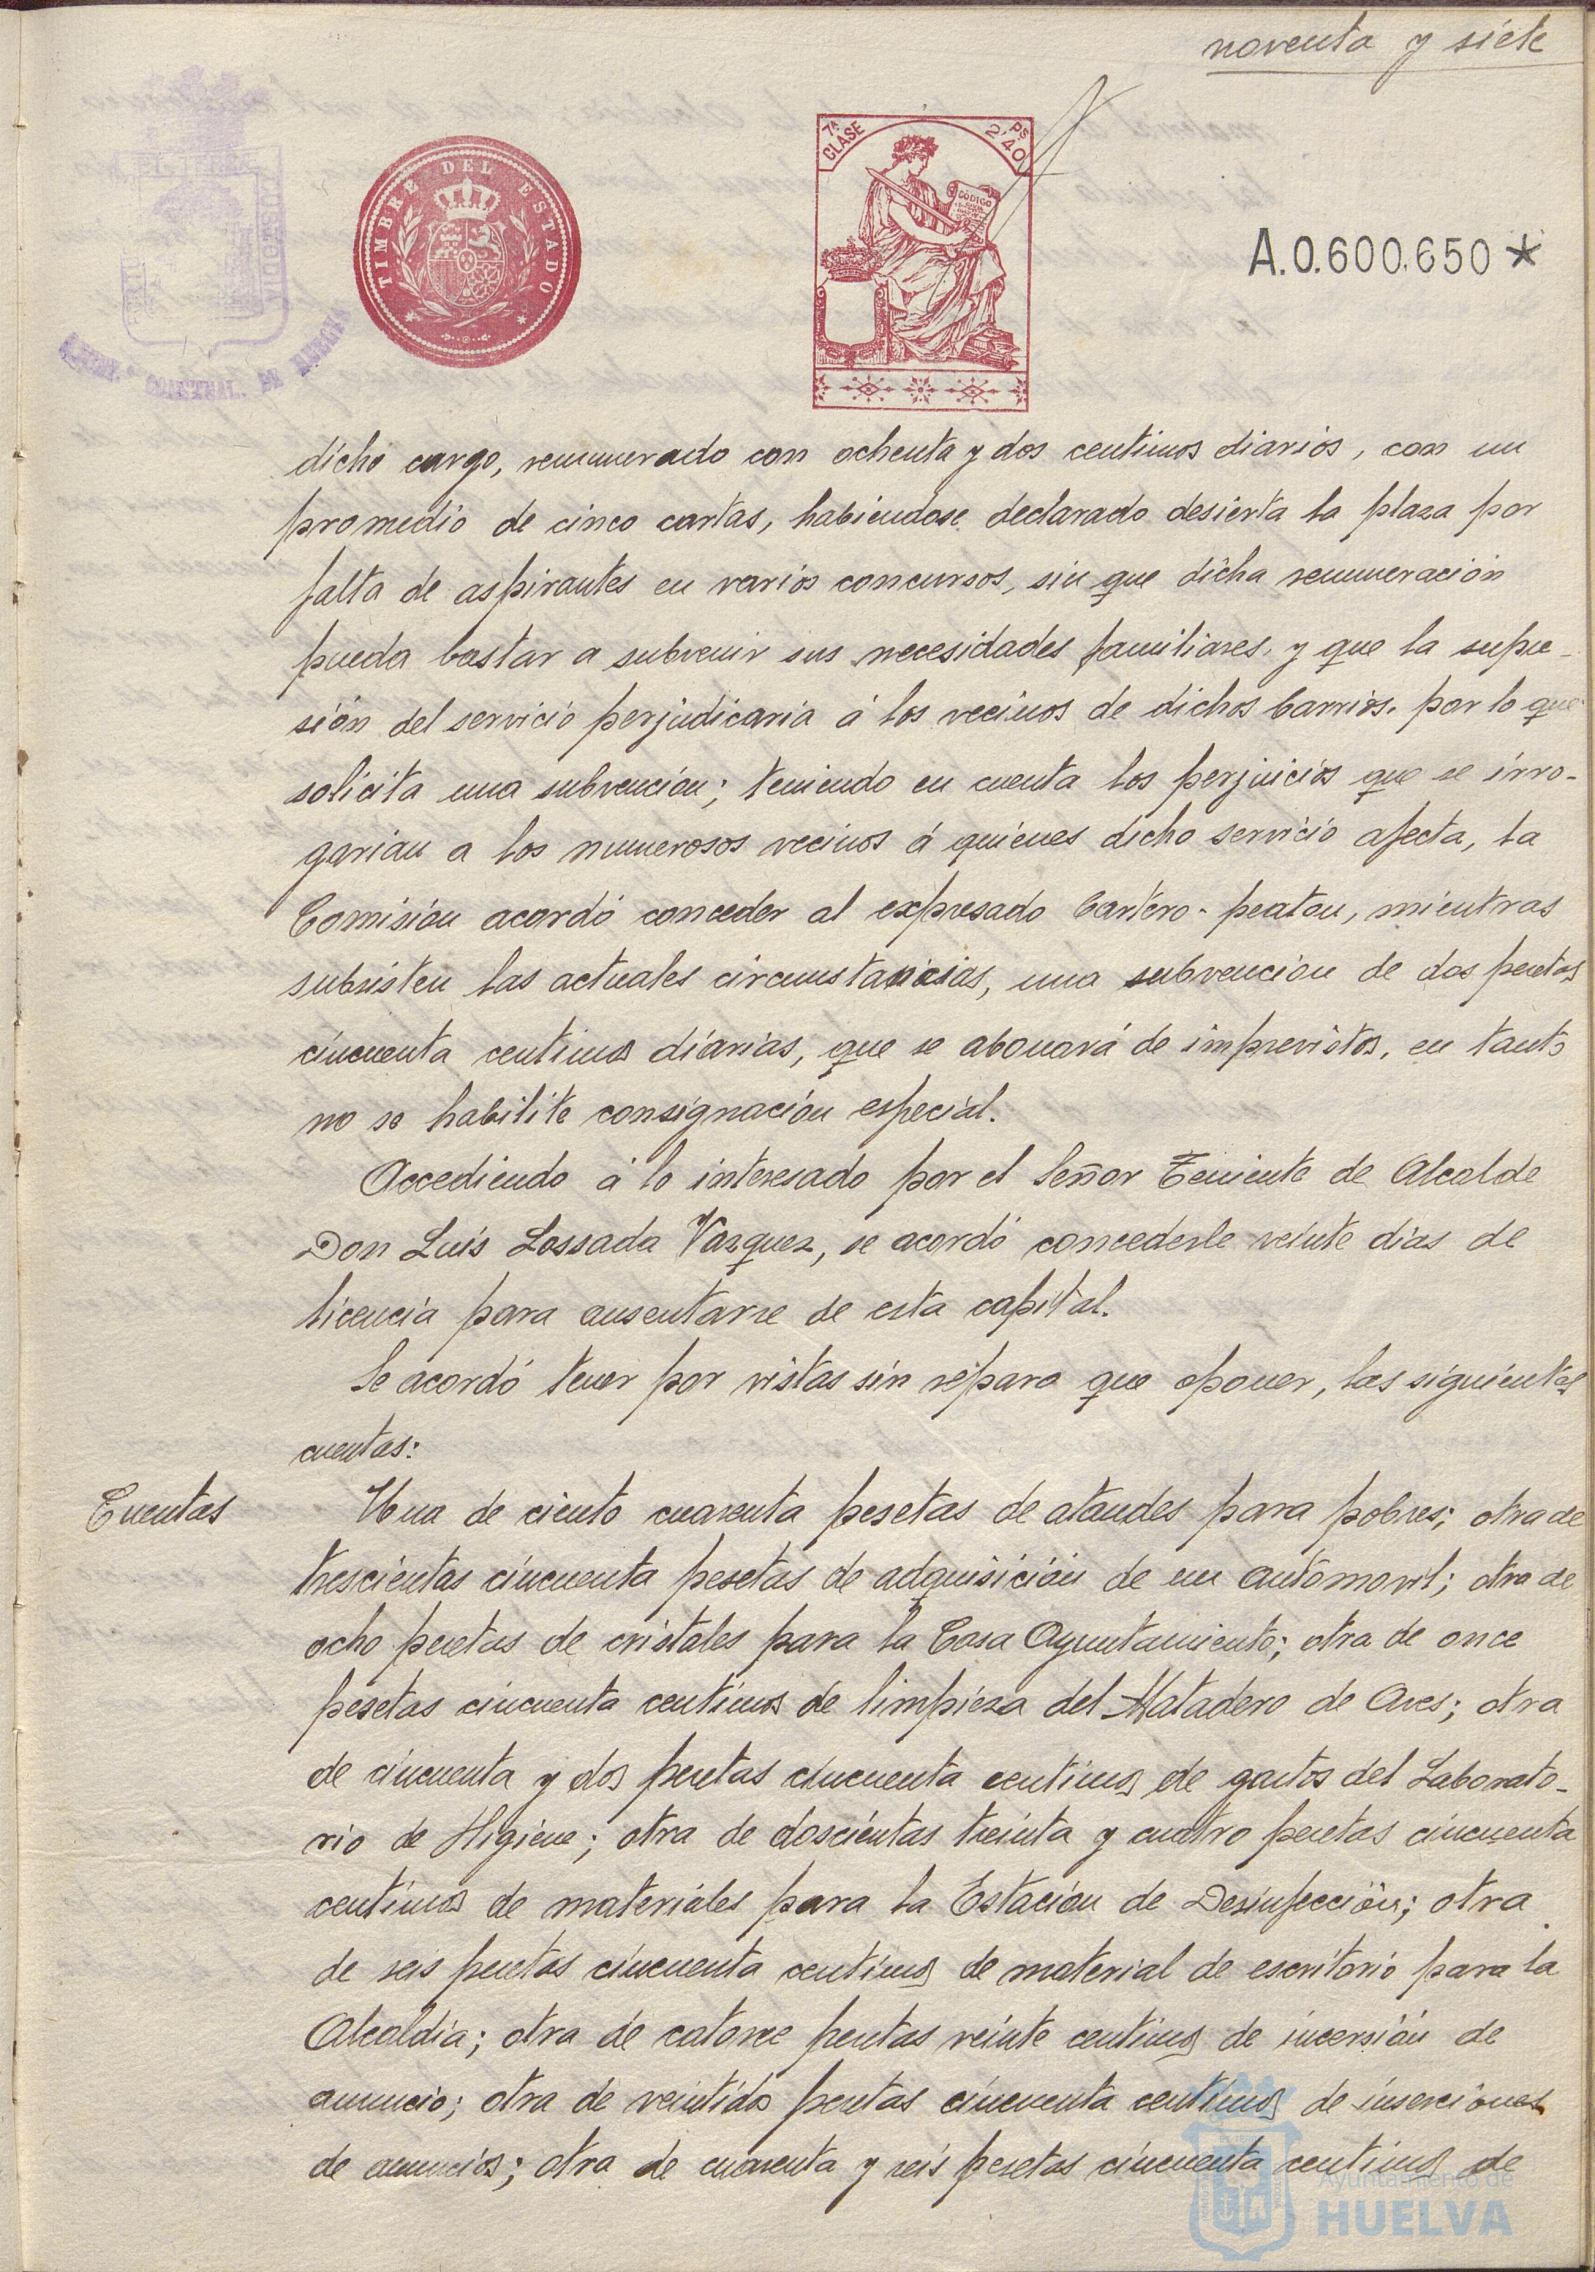 noventa y siete
TIMBRE DEL ESTADO
7ª CLASE
Ps. 2'40
CÓDIGO
A.0.600.650*
CONSTNAL. DE HUELVA
dicho cargo, remunerado con ochenta y dos centimos diarios, con un
promedio de cinco cartas, habiendose declarado desierta la plaza por
falta de aspirantes en varios concursos, sin que dicha remuneración
pueda bastar a subvenir sus necesidades familiares, y que la supre-
sión del servicio perjudicaria á los vecinos de dichos barrios, por lo que
solicita una subvención; teniendo en cuenta los perjuicios que se irro-
garian a los numerosos vecinos á quienes dicho servicio afecta, la
Comisión acordó conceder al expresado Cartero-peaton, mientras
subsisten las actuales circunstancias, una subvencion de dos pesetas
cincuenta centimos diarias, que se abonará de imprevistos, en tanto
no se habilite consignación especial.
Accediendo á lo interesado por el Señor Teniente de Alcalde
Don Luis Lossada Vazquez, se acordó concederle veinte dias de
licencia para ausentarse de esta capital.
Se acordó tener por vistas sin reparo que oponer, las siguientes
cuentas:
Cuentas
Una de ciento cuarenta pesetas de ataudes para pobres; otra de
trescientas cincuenta pesetas de adquisición de un automovil; otra de
ocho pesetas de cristales para la Casa Ayuntamiento; otra de once
pesetas cincuenta centimos de limpieza del Matadero de Aves; otra
de cincuenta y dos pesetas cincuenta centimos de gastos del Laborato-
rio de Higiene; otra de doscientas treinta y cuatro pesetas cincuenta
centimos de materiales para la Estación de Desinfección; otra
de seis pesetas cincuenta centimos de material de escritorio para la
Alcaldia; otra de catorce pesetas veinte centimos de incersión de
anuncio; otra de veintidos pesetas cincuenta centimos de inserciones
de anuncios; otra de cuarenta y seis pesetas cincuenta centimos de
Ayuntamiento de
HUELVA